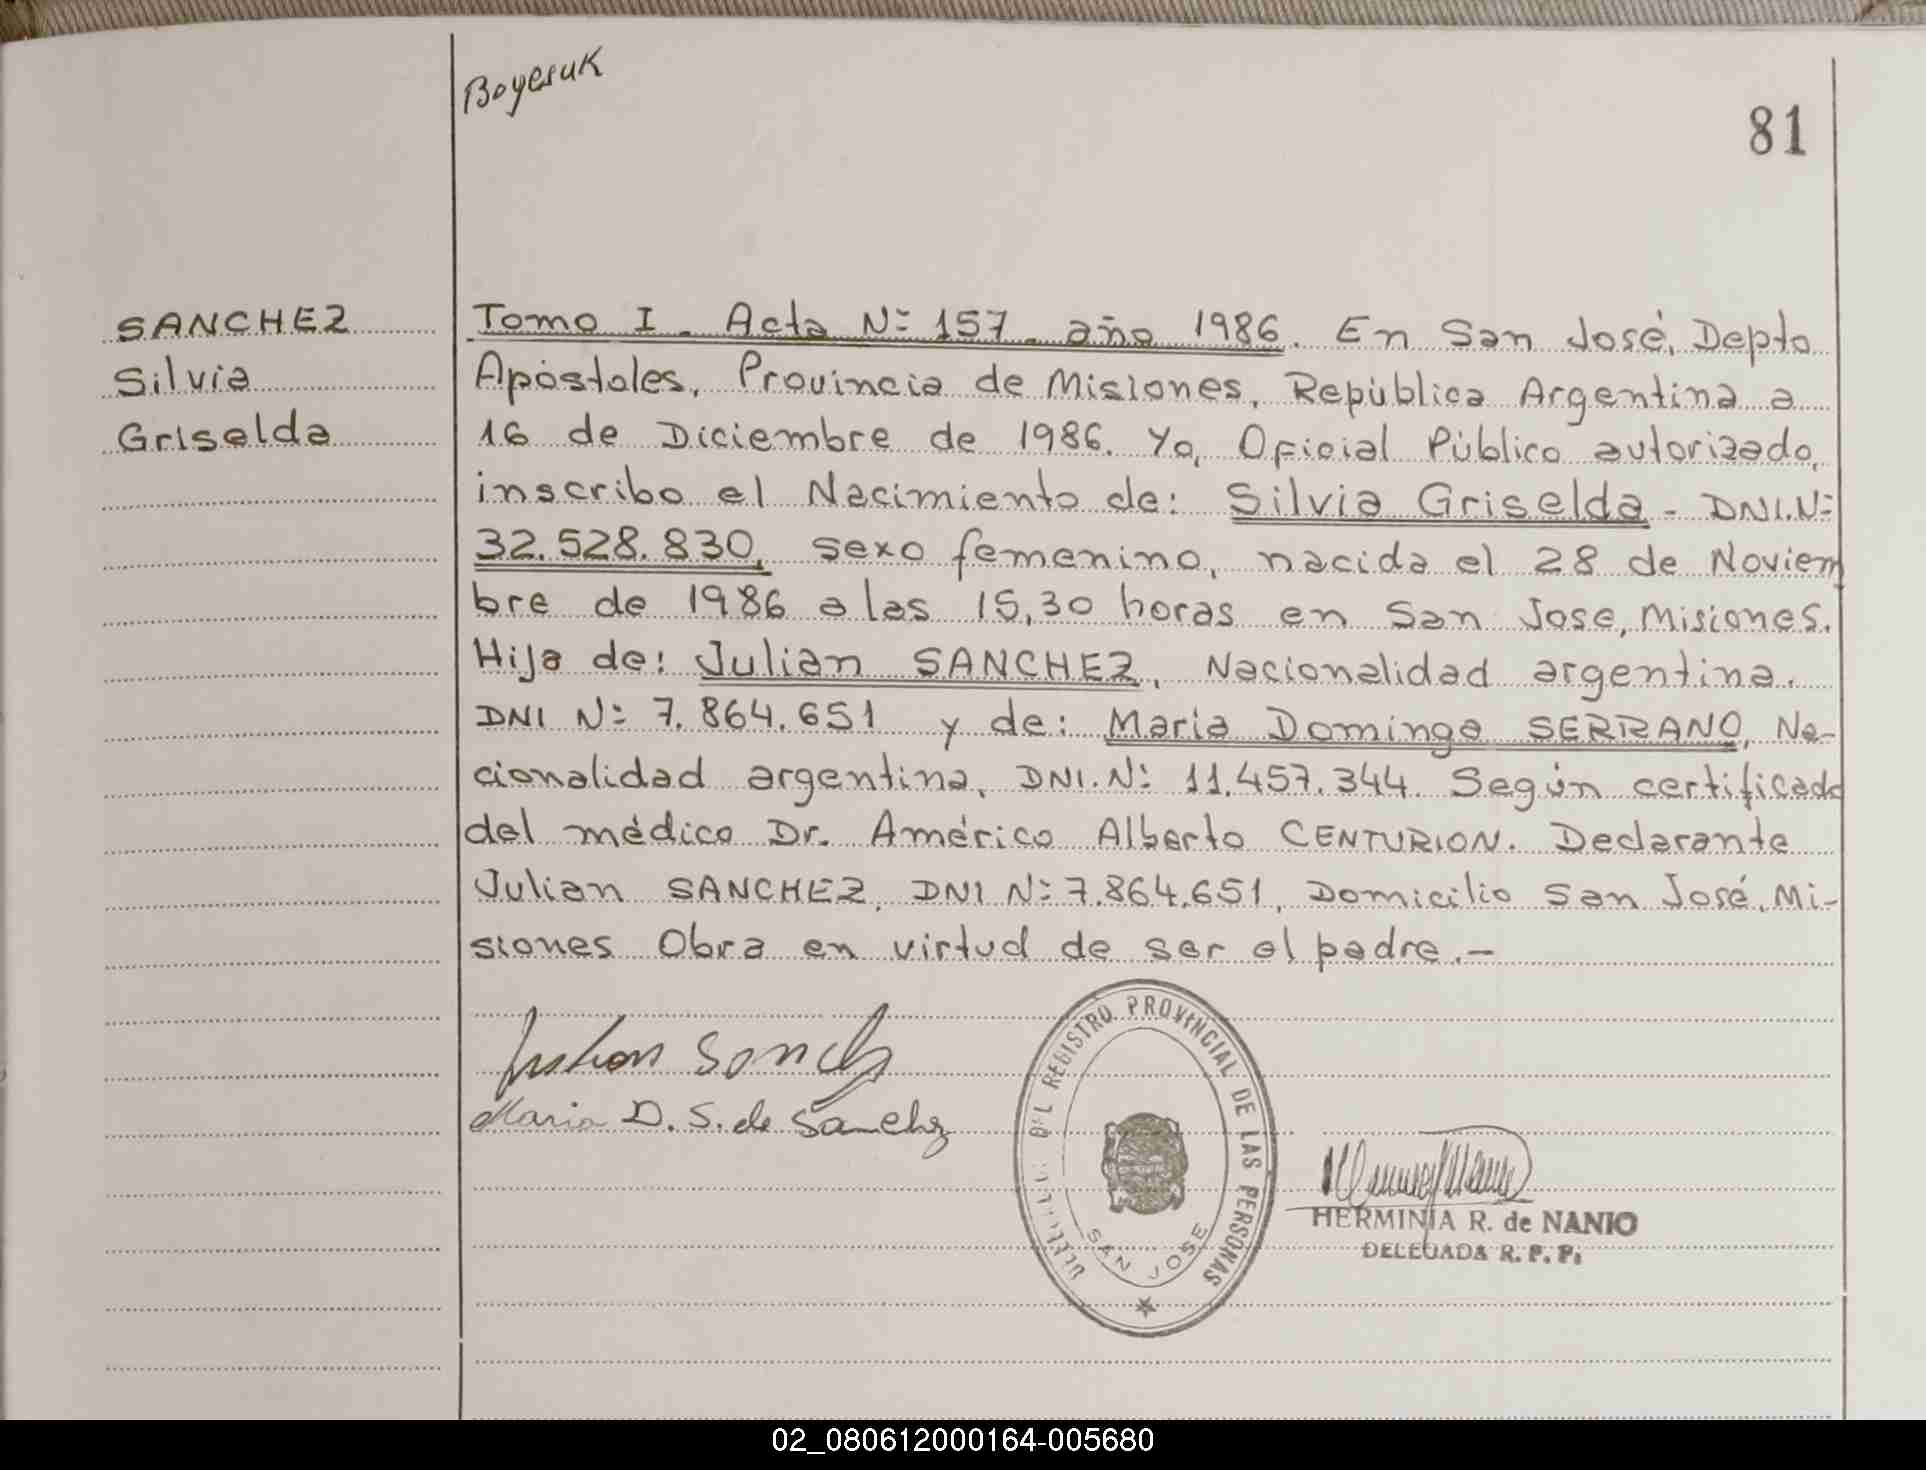 Boyesuk
81
SANCHEZ
Silvia
Griselda
Tomo I. Acta N: 157. año 1986. En San José, Depto
Apóstoles, Provincia de Misiones, República Argentina a
16 de Diciembre de 1986. Yo, Oficial Público autorizado,
inscribo el Nacimiento de: Silvia Griselda - DNI.N:
32.528.830, sexo femenino, nacida el 28 de Noviem
bre de 1986 a las 15,30 horas en San Jose, Misiones.
Hija de: Julian SANCHEZ, Nacionalidad argentina.
DNI N: 7.864.651 y de: Maria Dominga SERRANO, Na-
cionalidad argentina, DNI.N: 11.457.344. Según certificado
del médico Dr. Américo Alberto CENTURION. Declarante
Julian SANCHEZ, DNI N: 7.864.651, Domicilio San José, Mi-
siones Obra en virtud de ser el padre.-
Julian Sanchez
Maria D. S. de Sanchez
DEL REGISTRO PROVINCIAL DE LAS PERSONAS
SAN JOSE
HERMINIA R. de NANIO
DELEGADA R. P. P.
02_080612000164-005680